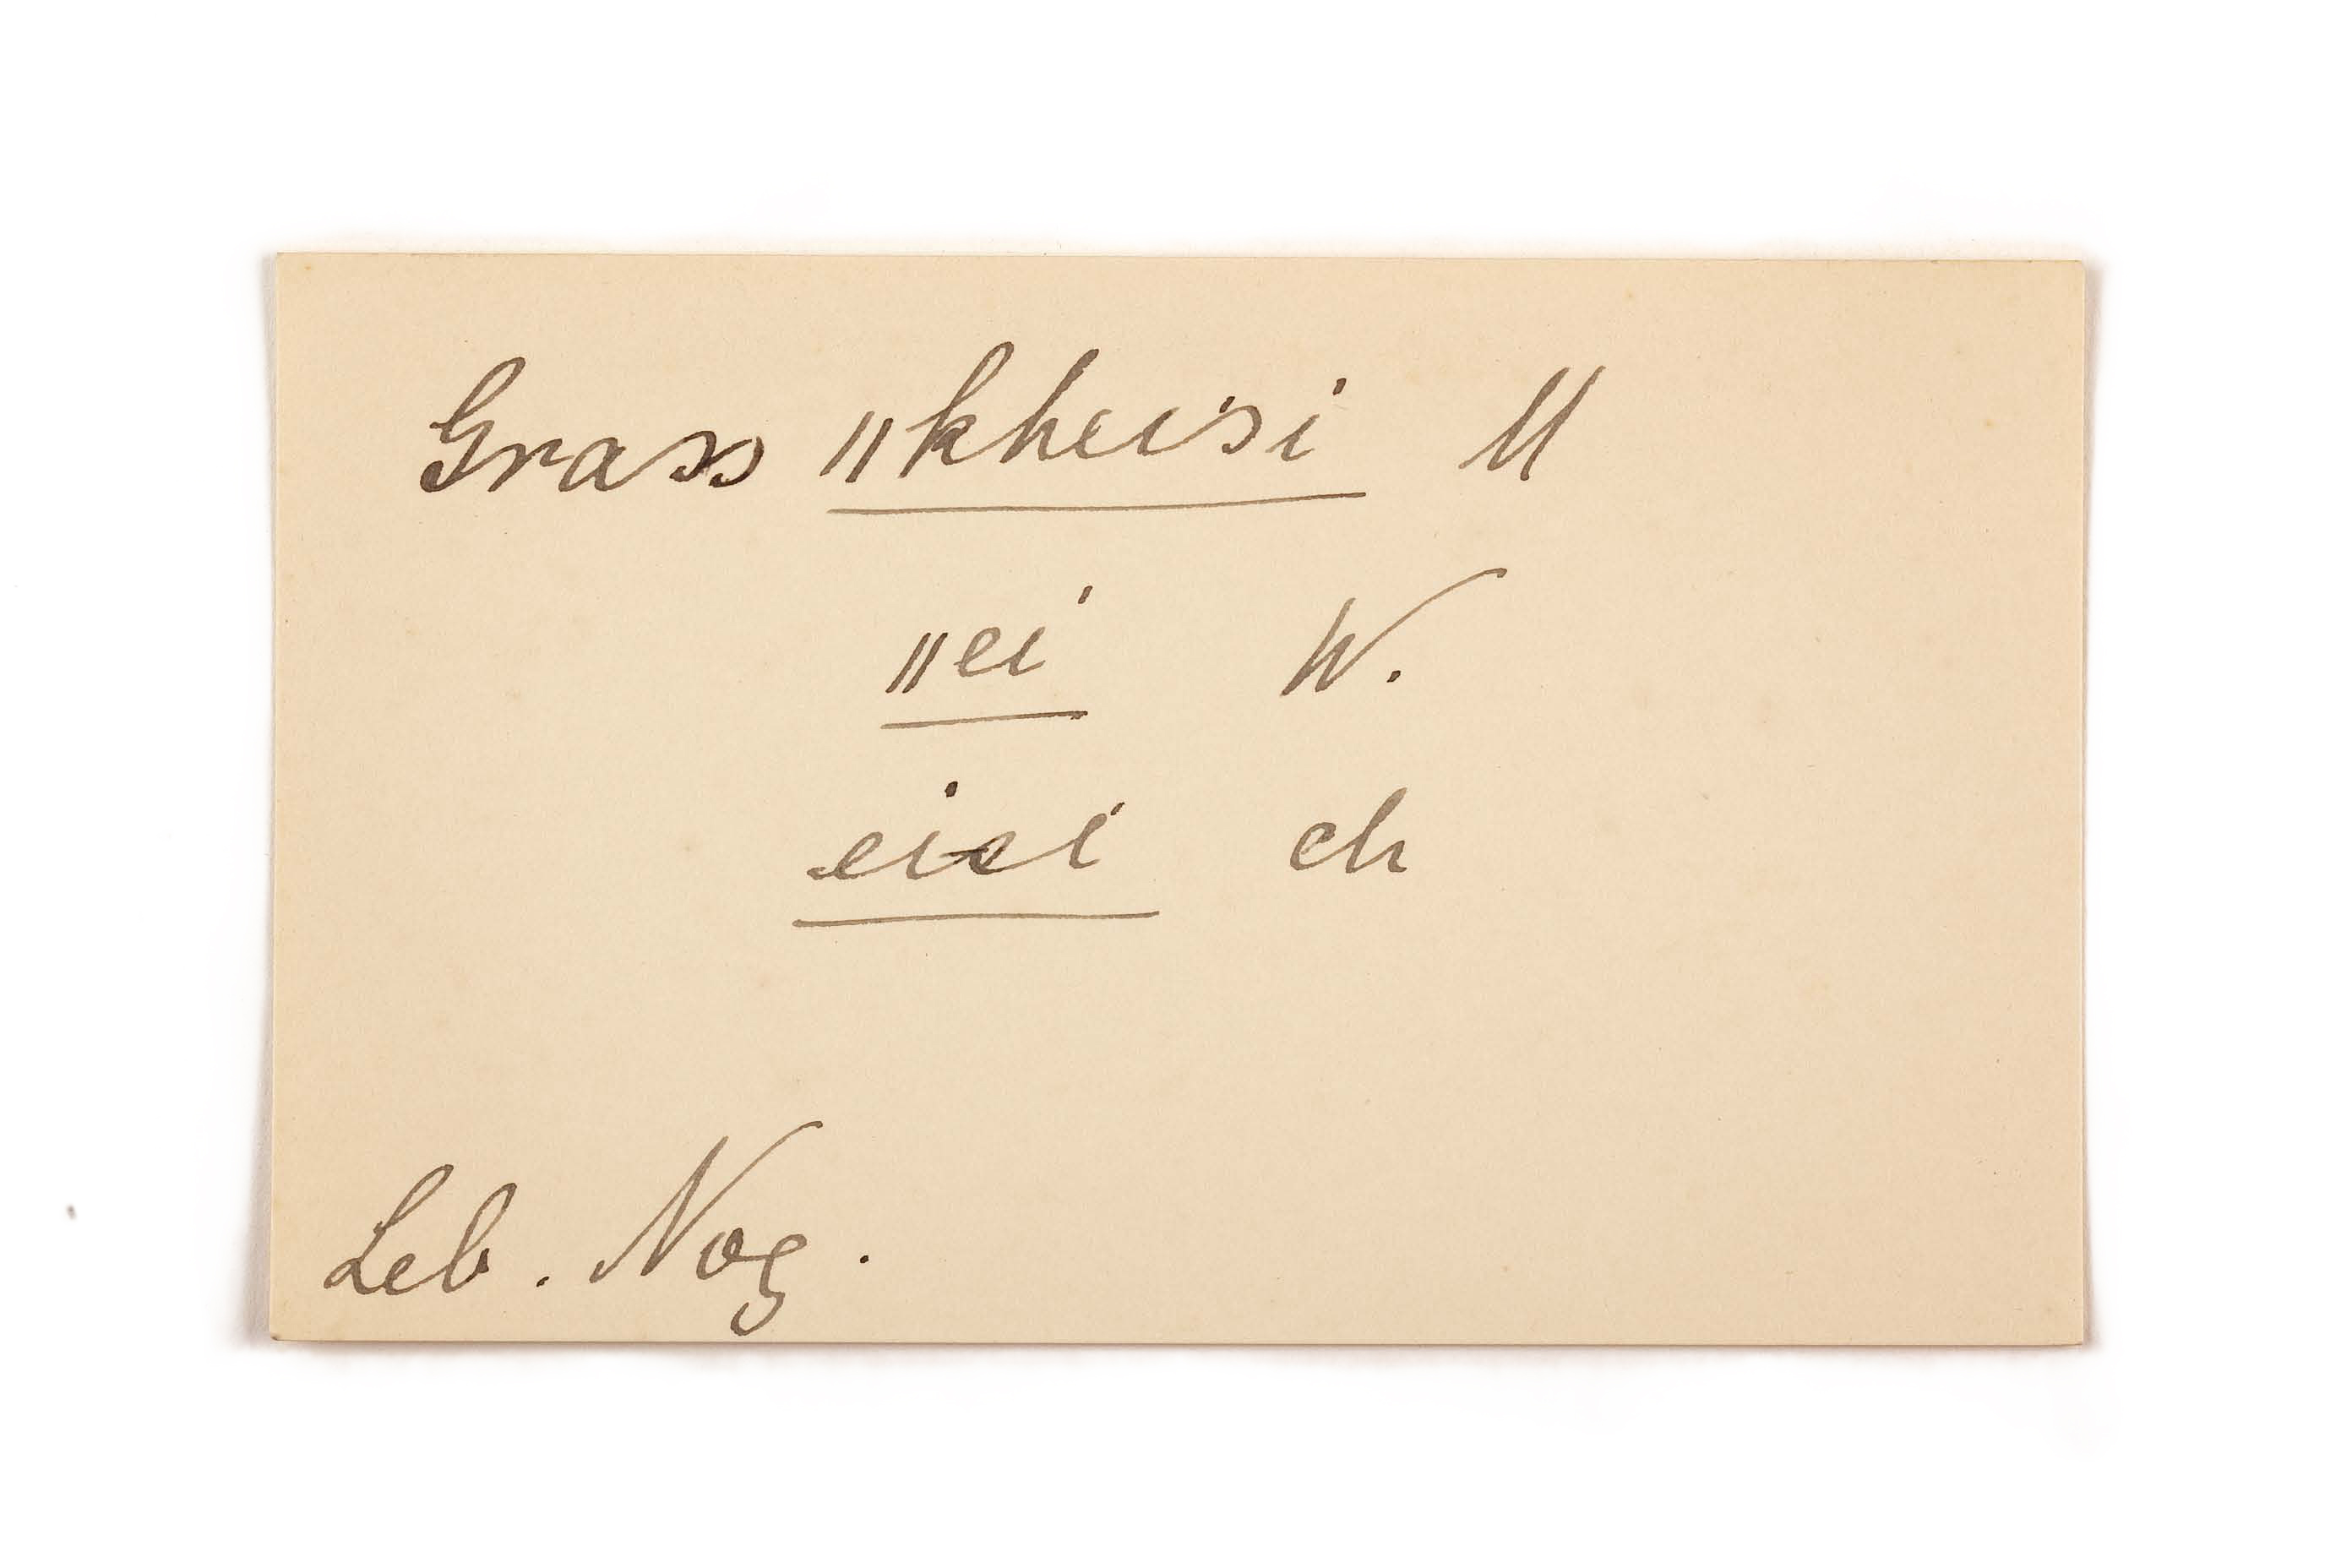 Grass ||kheisi M
||ei W.
eiei ch
Leb. Nog.